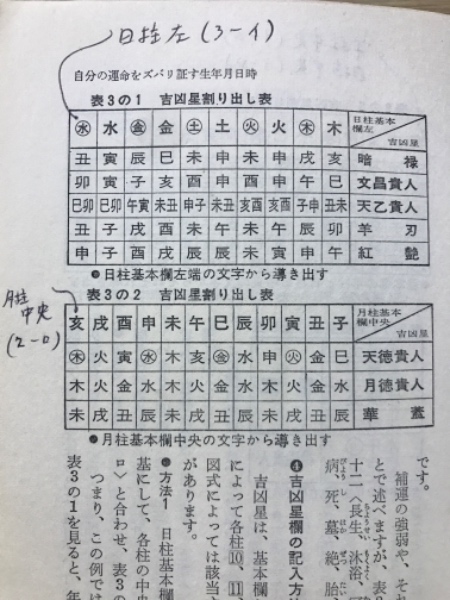 日柱左(3-イ)
自分の運命をズバリ証す生年月日時
表3の1 吉凶星割り出し表
㊌ 水 ㊎ 金 ㊏ 土 ㊋ 火 ㊍ 木 日柱基本欄左 吉凶星
丑 寅 辰 巳 未 申 未 申 戌 亥 暗禄
卯 寅 子 亥 酉 申 酉 申 午 巳 文昌貴人
巳卯 巳卯 午寅 未丑 申子 未丑 亥酉 亥酉 子申 丑未 天乙貴人
丑 子 戌 酉 未 午 未 午 辰 卯 羊刃
申 子 戌 酉 辰 辰 未 寅 申 午 紅艶
●日柱基本欄左端の文字から導き出す
月柱
中央
(2-ロ)
表3の2 吉凶星割り出し表
亥 戌 酉 申 未 午 巳 辰 卯 寅 丑 子 月柱基本欄中央 吉凶星
㊍ 火 寅 ㊌ 木 亥 ㊎ 水 申 ㊋ 金 巳 天徳貴人
木 火 金 水 木 火 金 水 木 火 金 水 月徳貴人
未 戌 丑 辰 未 戌 丑 辰 未 戌 丑 辰 華蓋
●月柱基本欄中央の文字から導き出す
です。
補運の強弱や、それ
とで述べますが、表
十二〈長生、沐浴、
病、死、墓、絶、胎
❹吉凶星欄の記入方
吉凶星は、基本欄
によって各柱⑩、⑪、
図式によっては該当
があります。
●方法1 日柱基本欄
基にして、各柱の中央
ロ〉と合わせ、表3の
つまり、この例では
表3の1を見ると、年